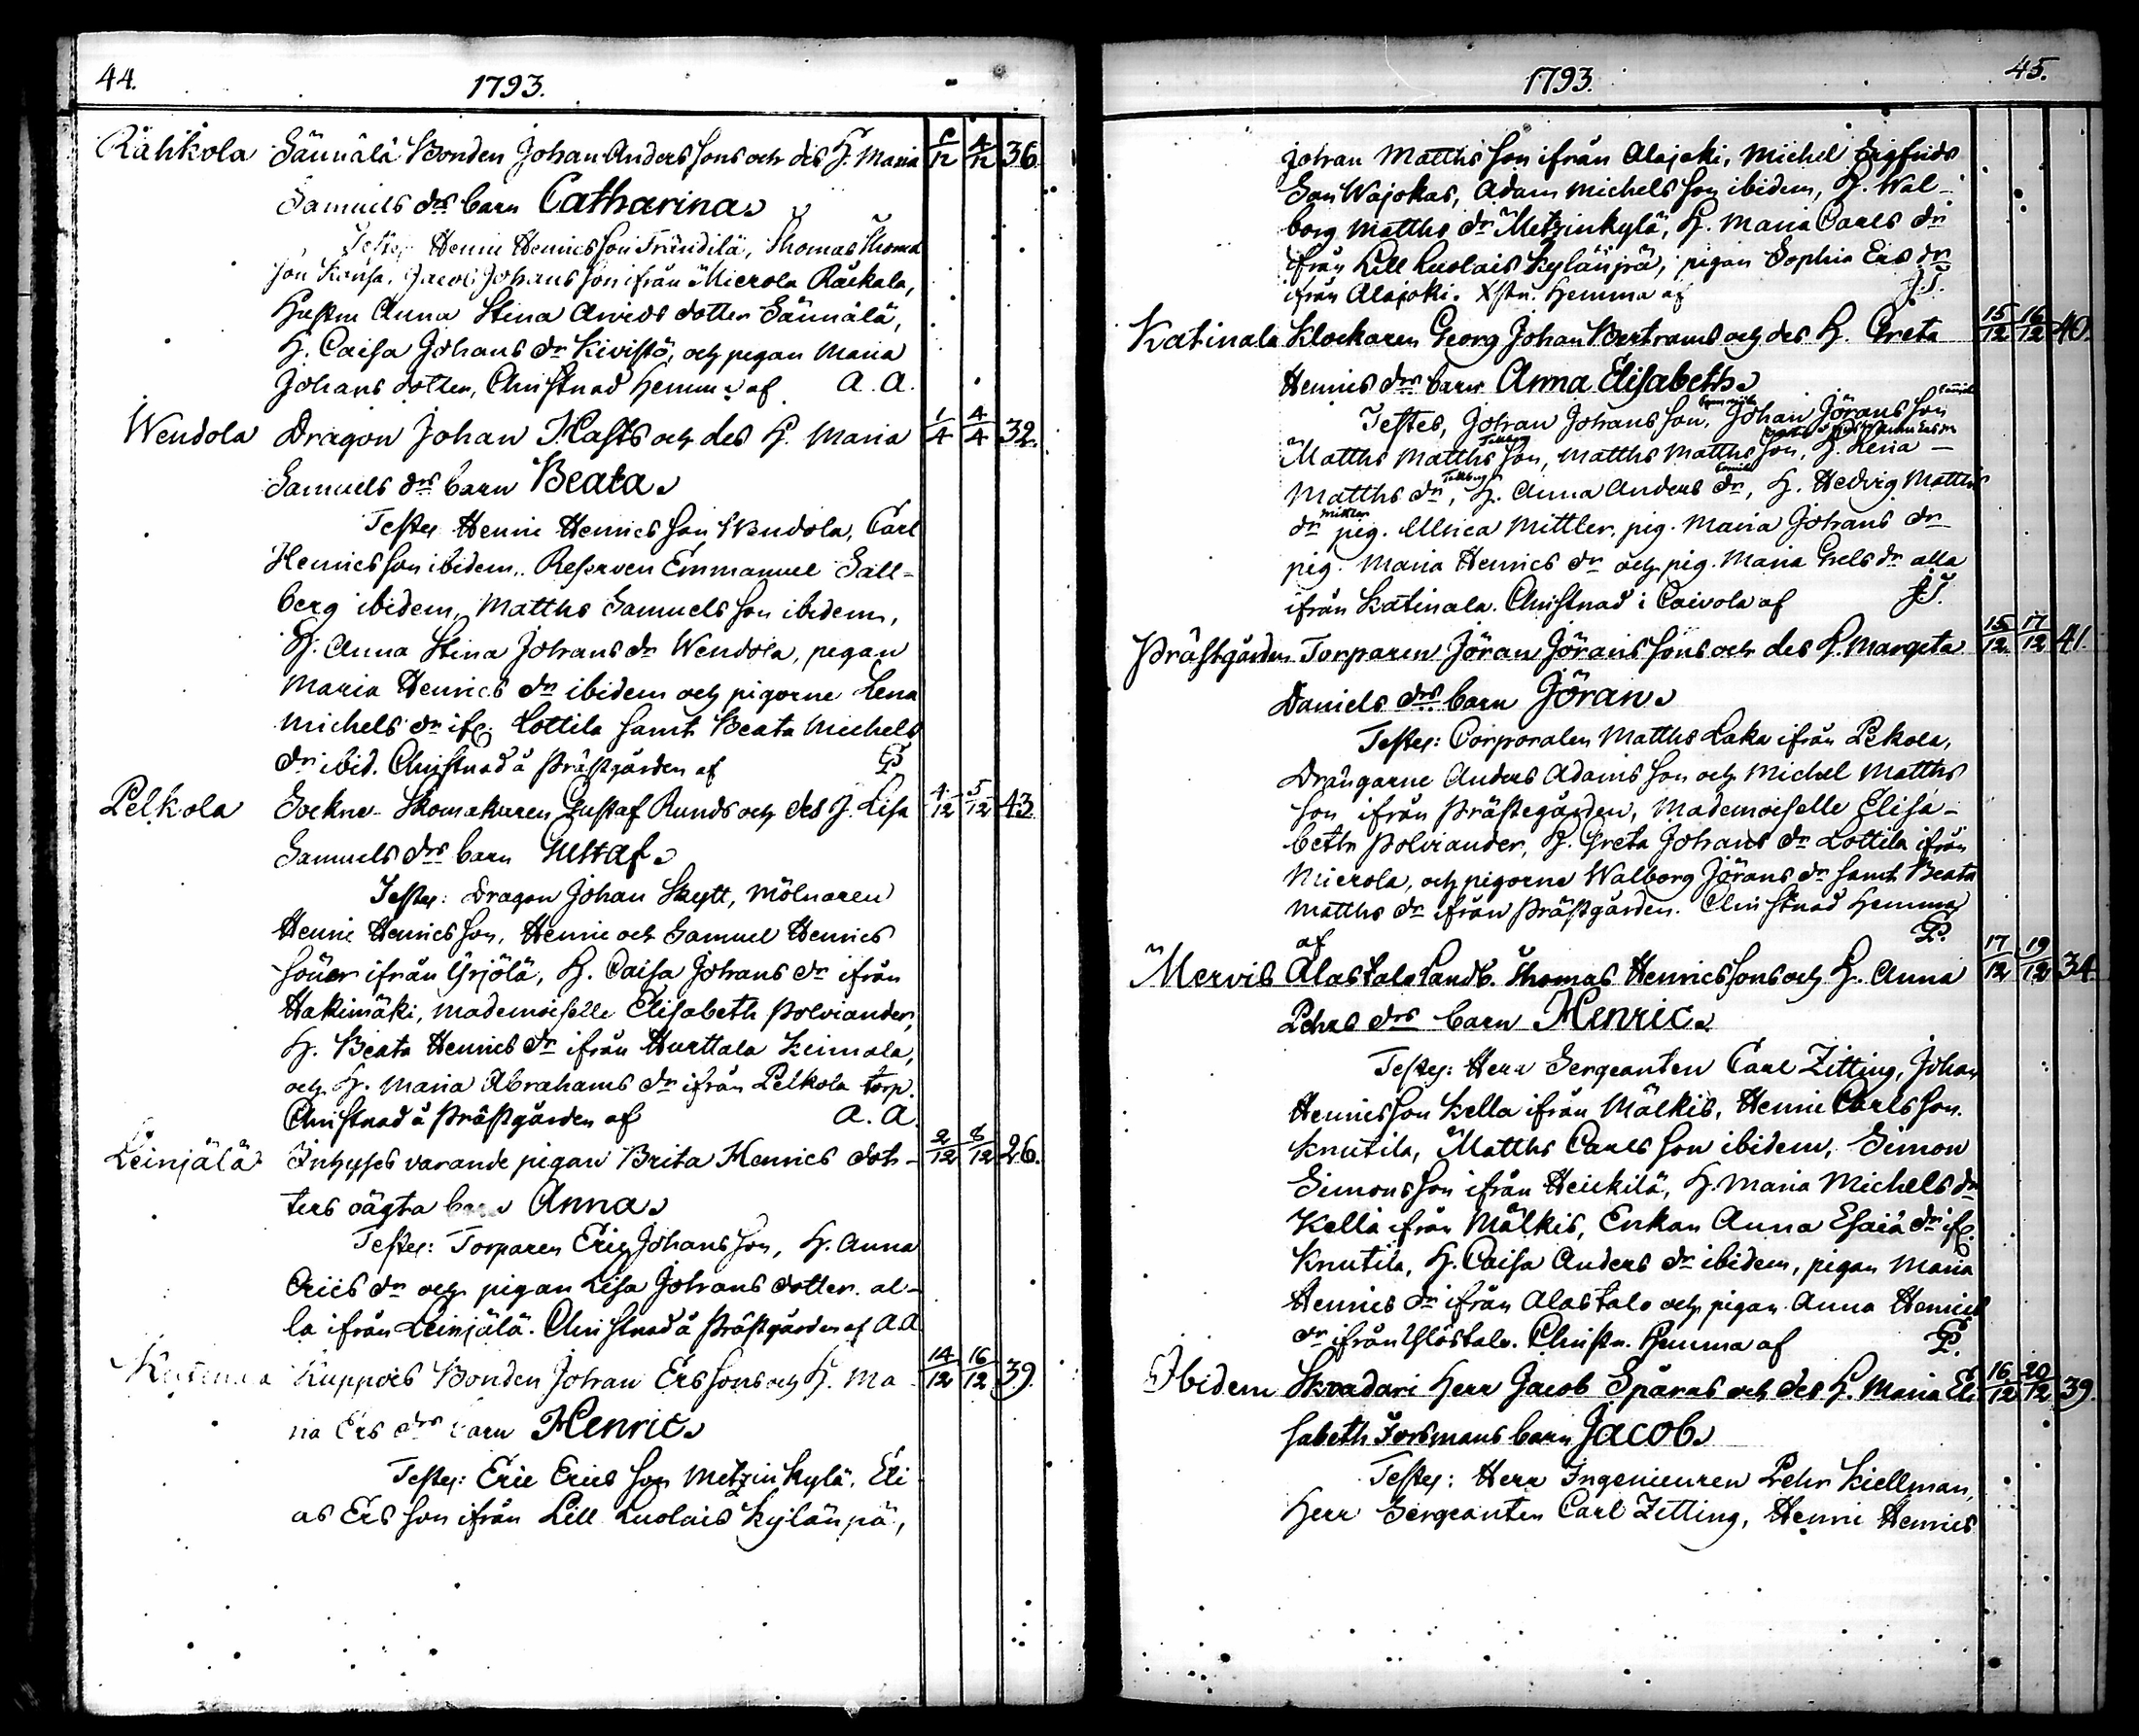 44. 1793.
Rähkola Sännälä Bonden Johan Anders Sons och des H. Maria 12 4/12 36.
Samuels drs barn Catharina
Testes Henric Henrics Son Frändilä, Thomas Thomæ
Son Kansa, Jacob Johans Son ifrån Mierola Räikala,
Hustru Anna Stina Arvids dotter Sännälä,
H. Caisa Johans dr Kivistö, och pigan Maria
Johans dotter, Christnad hemma af A. A.
Wendola Dragon Johan Hasts och des H. Maria 1/4 4/4 32.
Samuels drs barn Beata
Testes Henric Henrics Son Wendola, Carl
Henrics Son ibidem, Reserven Emmanuel Sall-
berg ibidem, Matths Samuels Son ibidem,
H. Anna Stina Johans dr Wendola, pigan
Maria Henrics dr ibidem och pigorne Lena
Michels dr ifr. Lottila samt Beata Michels
dr ibid. Christnad å Prästgården af P
Pelkola Sockne-Skomakaren Gustaf Runds och des H. Lisa 4/12 5/12 43.
Samuels drs barn Gustaf
Testes: Dragon Johan Skytt, Mölnaren
Henric Henrics Son, Henric och Samuel Henrics
Söner ifrån Yrjölä, H. Caisa Johans dr ifrån
Hakimäki, Mademoiselle Elisabeth Polviander,
H. Beata Henrics dr ifrån Hurttala Keimola,
och H. Maria Abrahams dr ifrån Pelkola torp.
Christnad å Prästgården af A. A.
Leinjälä Inhyses varande pigan Brita Henrics dot- 2/12 8/12 26.
ters oägta barn Anna
Testes: Torparen Eric Johans Son, H. Anna
Erics dr och pigan Lisa Johans dotter. al-
la ifrån Leinjälä. Christnad å Prästgården af A. A
Kuppois Bonden Johan Ers Sons och H. Ma- 14/12 16/12 39.
ria Ers drs barn Henric
Testes: Eric Erics Son Metzinkylä, Eli
as Ers Son ifrån Lill Luolais Kylänpä,
1793. 45.
Johan Matths Son ifrån Alajoki, Michel Sigfrids
Son Wajokas, Adam Michels Son ibidem, H. Wal-
borg Matths dr Metzinkylä, H. Maria Carls dr
ifrån Lill Luolais Kylänpä, pigan Sophia Ers dr
ifrån Alajoki. Xstn. hemma af J. T.
Katinala Klockaren Georg Johan Bertrams och des H. Greta 15/12 16/12 40.
Henrics drs barn Anna Elisabeth
Testes, Johan Johans Son, Johan Jörans Son
Matths Matths Son, Matths Matths Son, H. Lena
Matths dr, H. Anna Anders dr, H. Hedvig Matths
dr pig. Ulrica Mittler, pig. Maria Johans dr
pig. Maria Henrics dr och pig. Maria Grels dr alla
ifrån Katinala. Christnad i Caivola af J. T.
Prästgården Torparen Jöran Jörans Sons och des H. Margeta 15/12 17/12 41.
Daniels drs barn Jöran
Testes: Corporalen Matths Laka ifrån Pekola,
Drängarne Anders Adams Son och Michel Matths
Son ifrån Prästegården, Mademoiselle Elisa-
beth Polviander, H. Greta Johans dr Lottila ifrån
Mierola, och pigorne Walborg Jörans dr samt Beata
Matths dr ifrån Prästgården. Christnad hemma
af P.
Mervis Alastalo Landb. Thomas Henrics Sons och H. Anna 17/12 19/12 34.
Pehrs drs barn Henric
Testes: Herr Sergeanten Carl Zitting, Johan
Henrics Son Kella ifrån Mälkis, Henric Carls Son
Knutila, Matths Carls Son ibidem, Simon
Simons Son ifrån Heickilä, H. Maria Michels dr
Kella ifrån Mälkis, Enkan Anna Esaiæ dr ifr.
Knutila, H. Caisa Anders dr ibidem, pigan Maria
Henrics dr ifrån Alastalo och pigan Anna Henrics
dr ifrån Ylöstalo. Christn. hemma af P.
Ibidem Skvadari Herr Jacob Spåras och des H. Maria Eli 16/12 20/12 39.
sabeth Forsmans barn Jacob
Testes: Herr Ingenieuren Pehr Kiellman,
Herr Sergeanten Carl Zitting, Henric Henrics